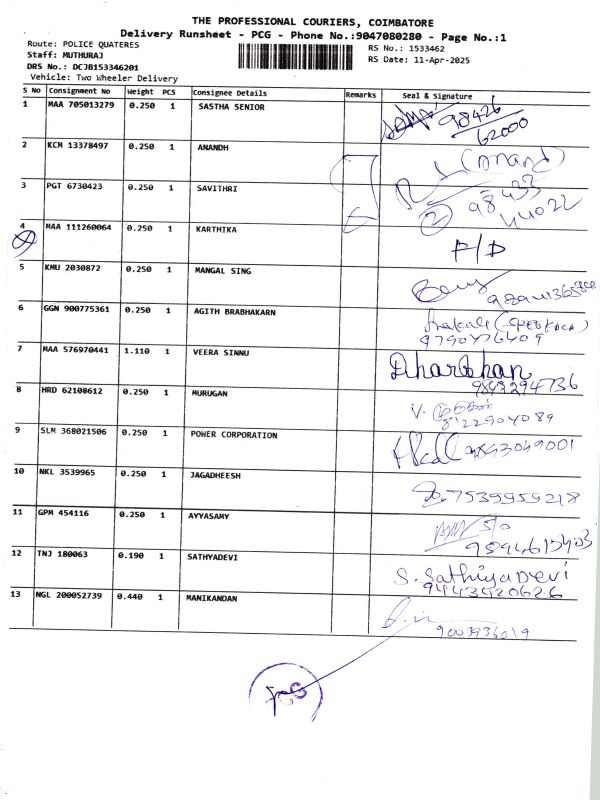 THE PROFESSIONAL COURIERS, COIMBATORE
Delivery Runsheet - PCG - Phone No.:9047080280 - Page No.:1
Route: POLICE QUATERES RS No.: 1533462
Staff: MUTHURAJ RS Date: 11-Apr-2025
DRS No.: DCJB153346201
Vehicle: Two Wheeler Delivery
S No Consignment No Weight PCS Consignee Details Remarks Seal & Signature
1 MAA 705013279 0.250 1 SASTHA SENIOR 98426
62000
2 KCM 13378497 0.250 1 ANANDH (Anand)
3 PGT 6730423 0.250 1 SAVITHRI 2 98433
44022
4 MAA 111260064 0.250 1 KARTHIKA F/D
5 KMU 2030872 0.250 1 MANGAL SING
6 GGN 900775361 0.250 1 AGITH BRABHAKARN
9790476409
7 MAA 576970441 1.110 1 VEERA SINNU Dharshan
9843294736
8 HRD 62108612 0.250 1 MURUGAN V.
8122904089
9 SLM 368021506 0.250 1 POWER CORPORATION 9893049001
10 NKL 3539965 0.250 1 JAGADHEESH 7539959218
11 GPM 454116 0.250 1 AYYASAMY S/o
12 TNJ 180063 0.190 1 SATHYADEVI S. Sathiya Devi
9443520626
13 NGL 200052739 0.440 1 MANIKANDAN
9003936019